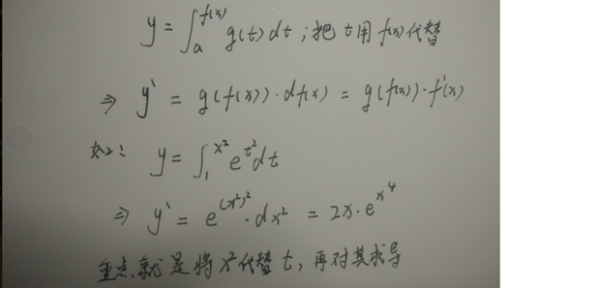 y = ∫ₐ^f(x) g(t) dt ; 把 t 用 f(x) 代替
⇒ y' = g(f(x)) · df(x) = g(f(x)) · f'(x)
如2: y = ∫₁^x² e^t² dt
⇒ y' = e^(x²)² · dx² = 2x · e^x⁴
重点就是将 x² 代替 t, 再对其求导